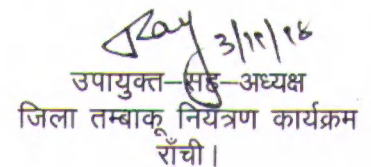 3/11/18
उपायुक्त-सह-अध्यक्ष
जिला तम्बाकू नियंत्रण कार्यक्रम
राँची।